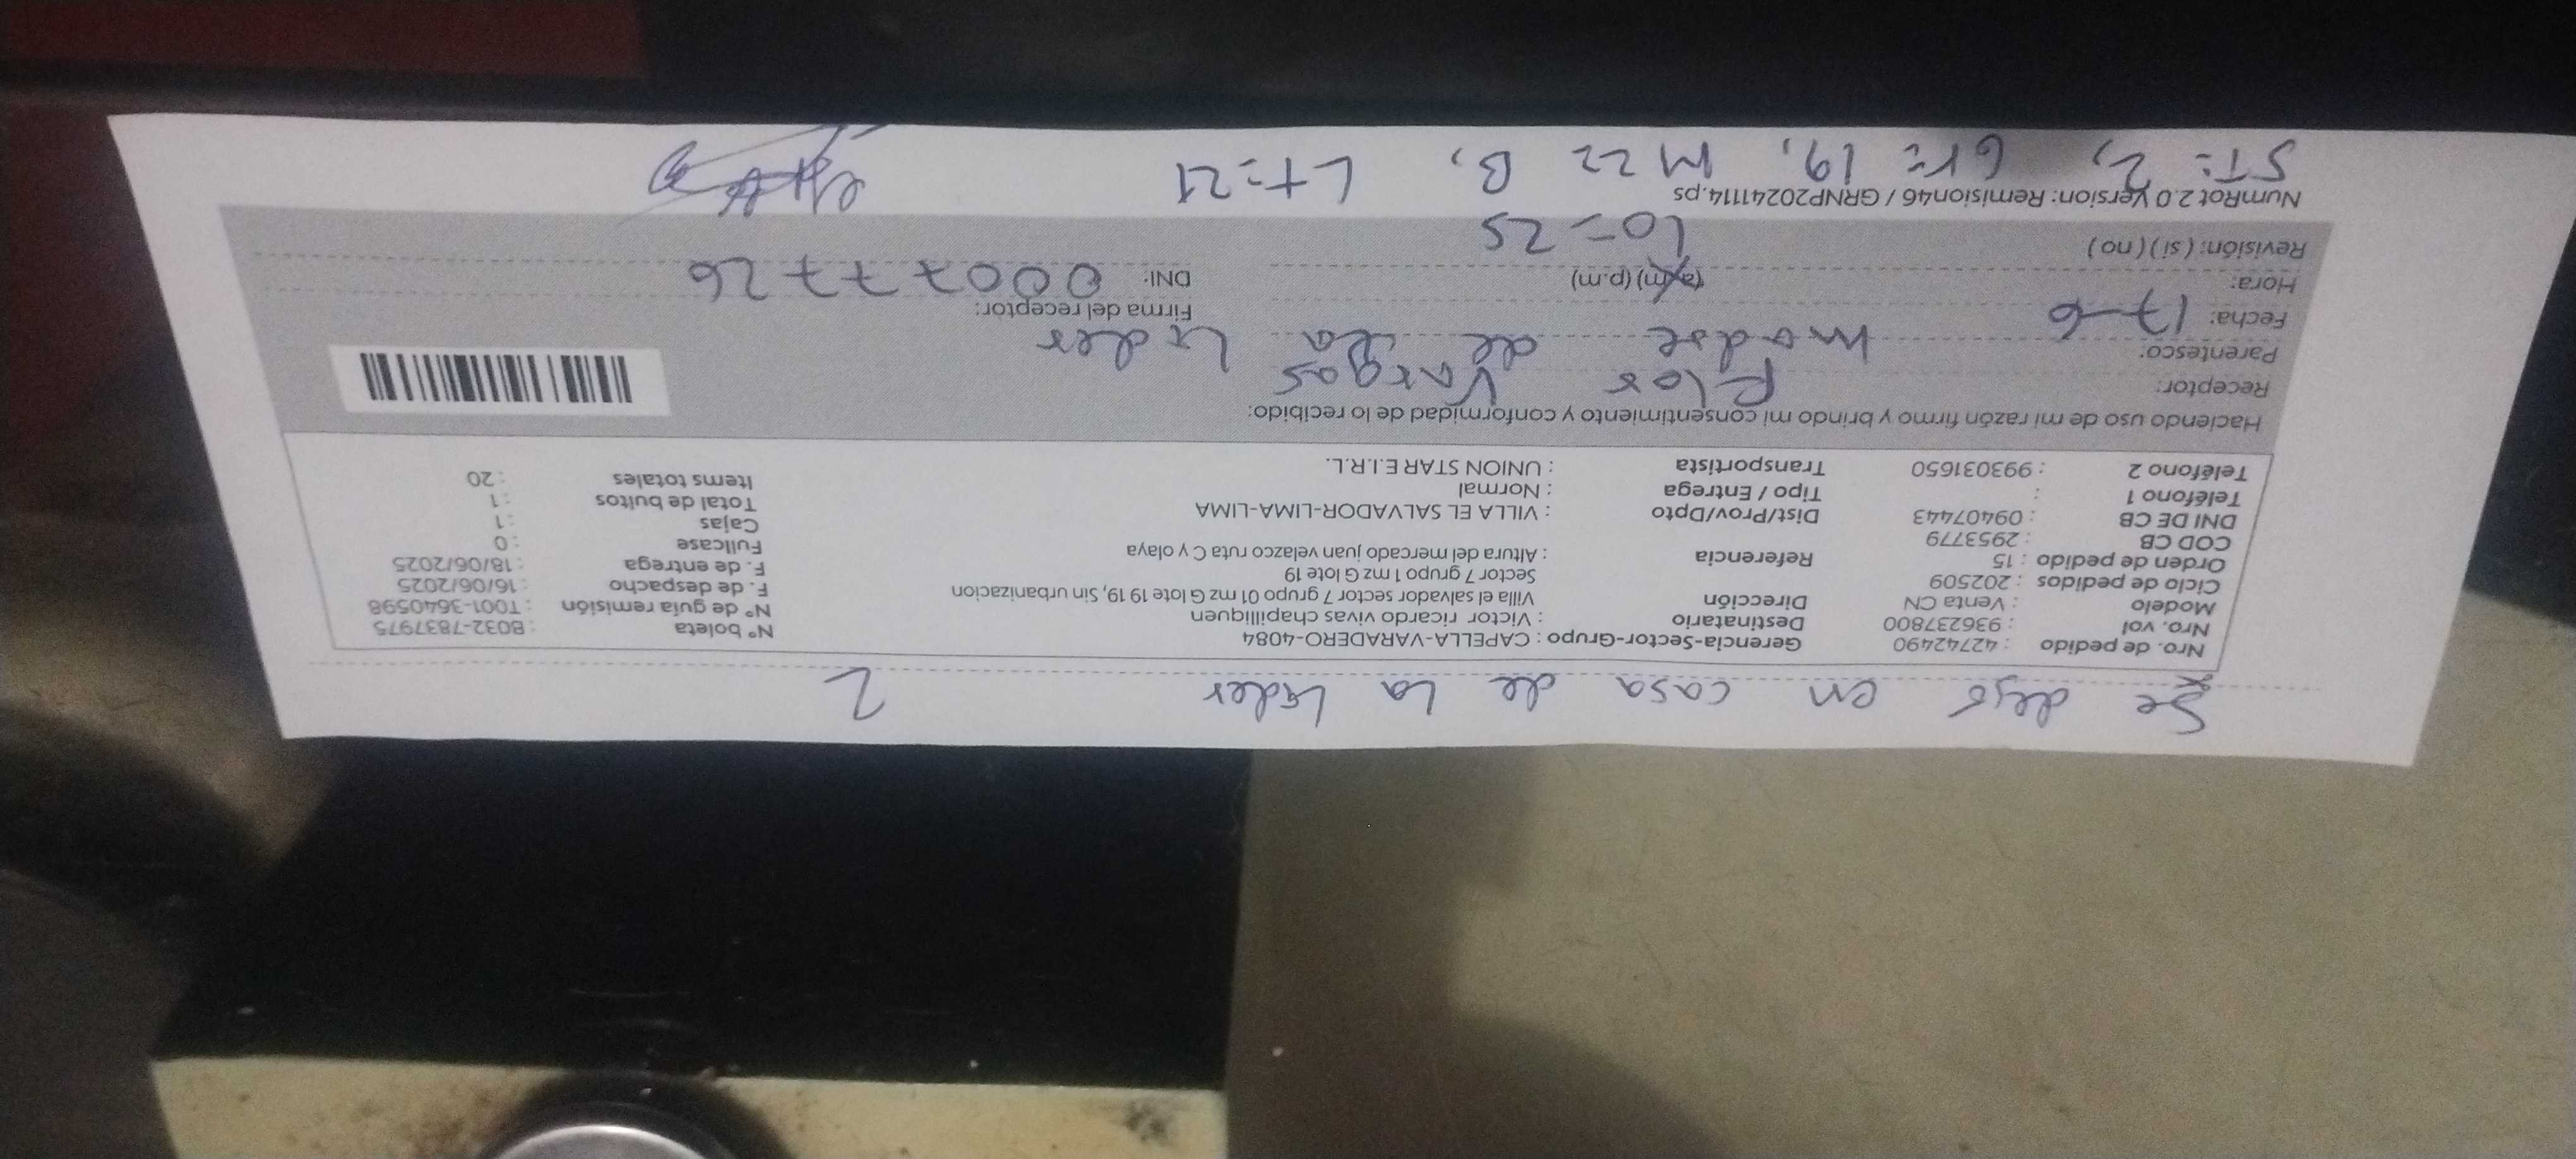 Se dejó en casa de La Lider 2
Nro. de pedido : 42742490 Gerencia-Sector-Grupo : CAPELLA-VARADERO-4084 N° boleta : B032-7837975
Nro. vol : 936237800 Destinatario : Victor ricardo vivas chapilliquen N° de guía remisión : T001-3640598
Modelo : Venta CN Dirección Villa el salvador sector 7 grupo 01 mz G lote 19 19, Sin urbanizacion F. de despacho : 16/06/2025
Ciclo de pedidos : 202509 Sector 7 grupo 1 mz G lote 19 F. de entrega : 18/06/2025
Orden de pedido : 15 Referencia : Altura del mercado juan velazco ruta C y olaya Fullcase : 0
COD CB : 2953779 Dist/Prov/Dpto : VILLA EL SALVADOR-LIMA-LIMA Cajas : 1
DNI DE CB : 09407443 Tipo / Entrega : Normal Total de bultos : 1
Teléfono 1 : Transportista : UNION STAR E.I.R.L. Items totales : 20
Teléfono 2 : 993031650
Haciendo uso de mi razón firmo y brindo mi consentimiento y conformidad de lo recibido:
Receptor: Flor Vargas
Parentesco: madre de la Lider
Fecha: 17-6 Firma del receptor:
Hora: (a.m) (p.m) DNI: 00077726
10=25
Revisión: ( si ) ( no )
NumRot 2.0 Version: Remision46 / GRNP20241114.ps
ST: 2, Gr= 19, M22 B, Lt=21